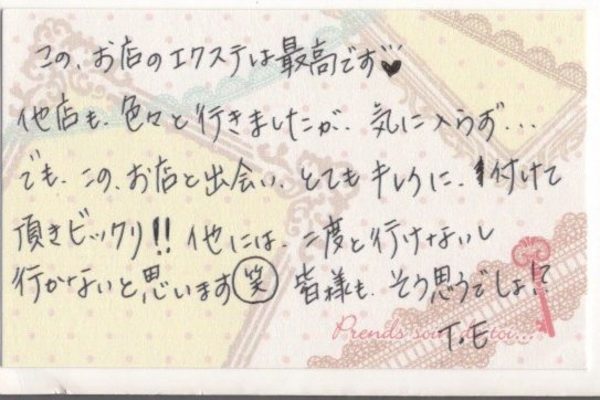 この、お店のエクステは最高です♥
他店も、色々と行きましたが、気に入らず...
でも、この、お店と出会い、とてもキレイに、付けて
頂きビックリ!! 他には、二度と行けないし
行かないと思います(笑) 皆様も、そう思うでしょ!?
Prends soin de toi...
T.E